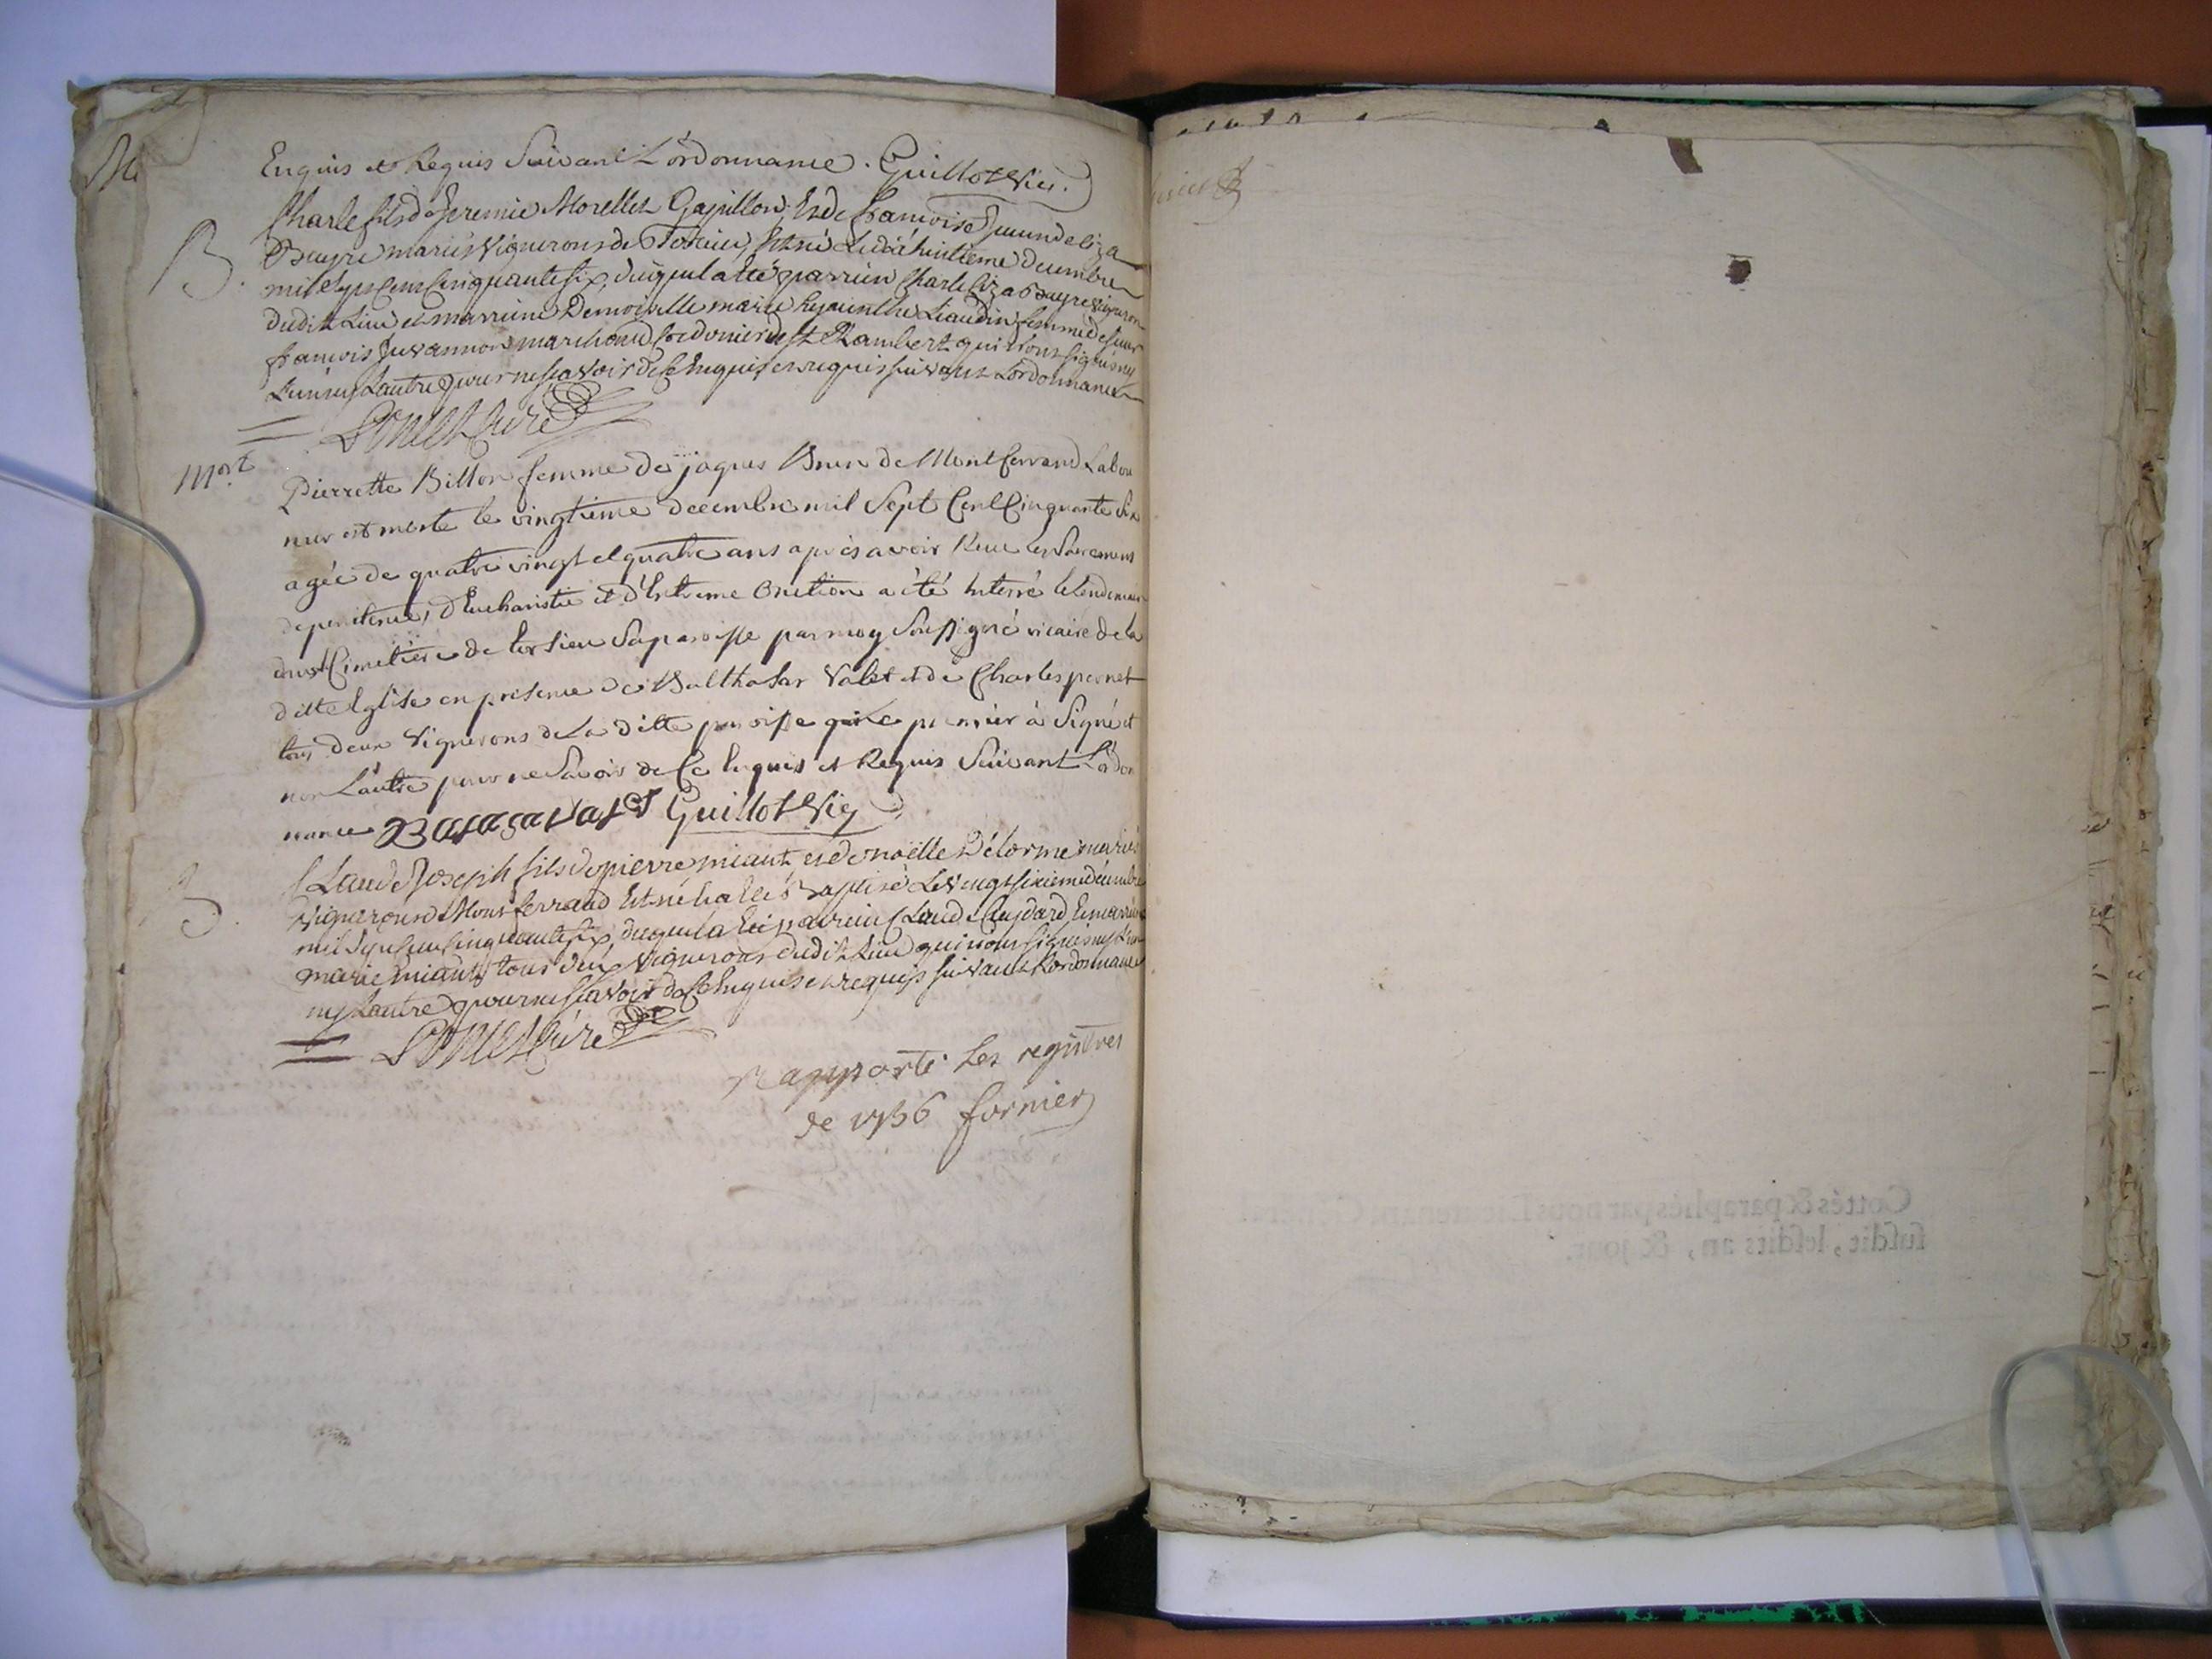 Enquis et Requis Suivant L'ordonnance. Guillot Vic.
B.
Charle fils de Jeremie Morellet Gapillon, Et de francoise
Baupre mariés Vignerons de Torcieu, Est né Le dix huitieme decembre
mil sept Cent Cinquante six, duquel a été parrien Charle Vigneron
dudit Lieu et marrine Demoiselle marie hyacinthe Liaudin femme de sieur
francois Juvannon marchand Cordonier de St Rambert qui n'ont signés ny
L'un ny L'autre pour ne scavoir de Ce Enquis et requis suivant L'ordonnance
Curé
Mort
Pierrette Billon femme de jaques Brun de Montferrand Labou
reur est morte le vingtieme decembre mil Sept Cent Cinquante Six
agée de quatre vingt et quatre ans après avoir Reçu les Sacremens
de penitence, d'Eucharistie et d'Extreme Onction a été Enterré le lendemain
au Cimetiere de torsieu Sa paroisse par moy Soussigné vicaire de la
ditte Eglise en presence de Balthasar Valet et de Charles pernet
tous deux Vignerons de La ditte paroisse qui le premier à Signé et
non L'autre pour ne Savoir de Ce Enquis et Requis Suivant L'ordon
nance Guillot Vic
B.
Claude Joseph fils de pierre miant et de noëlle Délorme mariés
Vignerons de Montferrand Est né ha Eté Baptisé Le Vingt sixieme decembre
mil Sept Cent Cinquante six, duquel a Eté parrein Claude Et marrine
marie miant tous deux Vignerons dudit Lieu qui n'ont signés ny L'un
ny L'autre pour ne scavoir de Ce Enquis et requis suivant L'ordonnance
Curé
Rapporté Les registres
de 1756 fornier
Cottés & paraphés par nous Lieutenant Général
susdit, lesdits an, & jour.